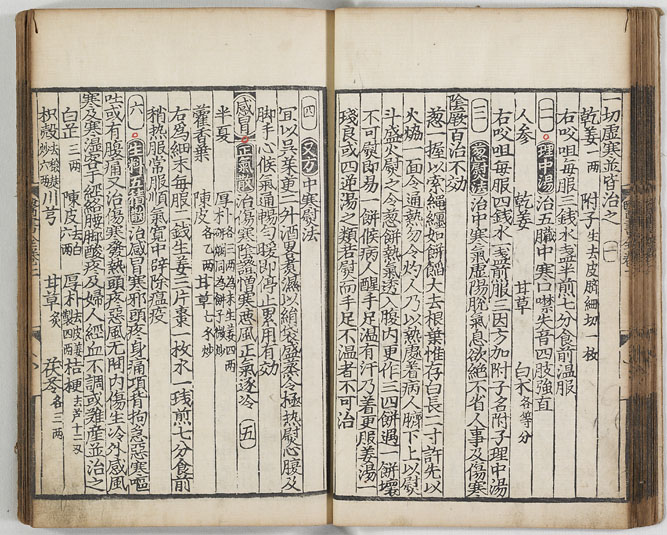 一切虛寒並皆治之
乾姜一兩 附子生去皮臍細切一枚
右㕮咀每服三錢水一盞半煎七分食前溫服
㊁理中湯治五臟中寒口噤失音四肢強直
人參 乾姜 甘草 白朮各等分
右㕮咀每服四錢水一盞煎服三因方加附子名附子理中湯
㊂葱熨法治中寒氣虛陽脫氣息欲絕不省人事及傷寒
陰厥百治不効
葱一握以索縄纏如餅餤大去根葉惟存白長二寸許先以
火煿一面令通熱勿令灼人乃以熱處着病人臍下上以熨
斗盛火熨之令葱餅熱氣透入腹內更作三四餅遇一餅壞
不可熨即易一餅候病人醒手足溫有汗乃着更服姜湯一
殘良或四逆湯之類若熨而手足不溫者不可治
㊃又方中寒熨法
宜以吳茱萸二升酒
脚手心候氣通暢勻暖即停止累用有効
感冒 正氣散治傷寒陰證憎寒惡風正氣逐冷 五
半夏 厚朴
藿香葉 陳皮 甘草
右為細末每服二錢生姜三片棗一枚水一殘煎七分食前
稍熱服常服順氣寬中辟除瘟疫
㊅生料五積散治感冒寒邪頭疼身痛項背拘急惡寒嘔
吐或有腹痛又治傷寒發熱頭疼惡風无問內傷生冷外感風
寒及寒濕客于經絡腰脚酸疼及婦人經血不調或難產並治之
白芷三兩 陳皮去白六兩 厚朴 桔梗去芦十二兩
枳殼 川芎 甘草炙 茯苓各三兩